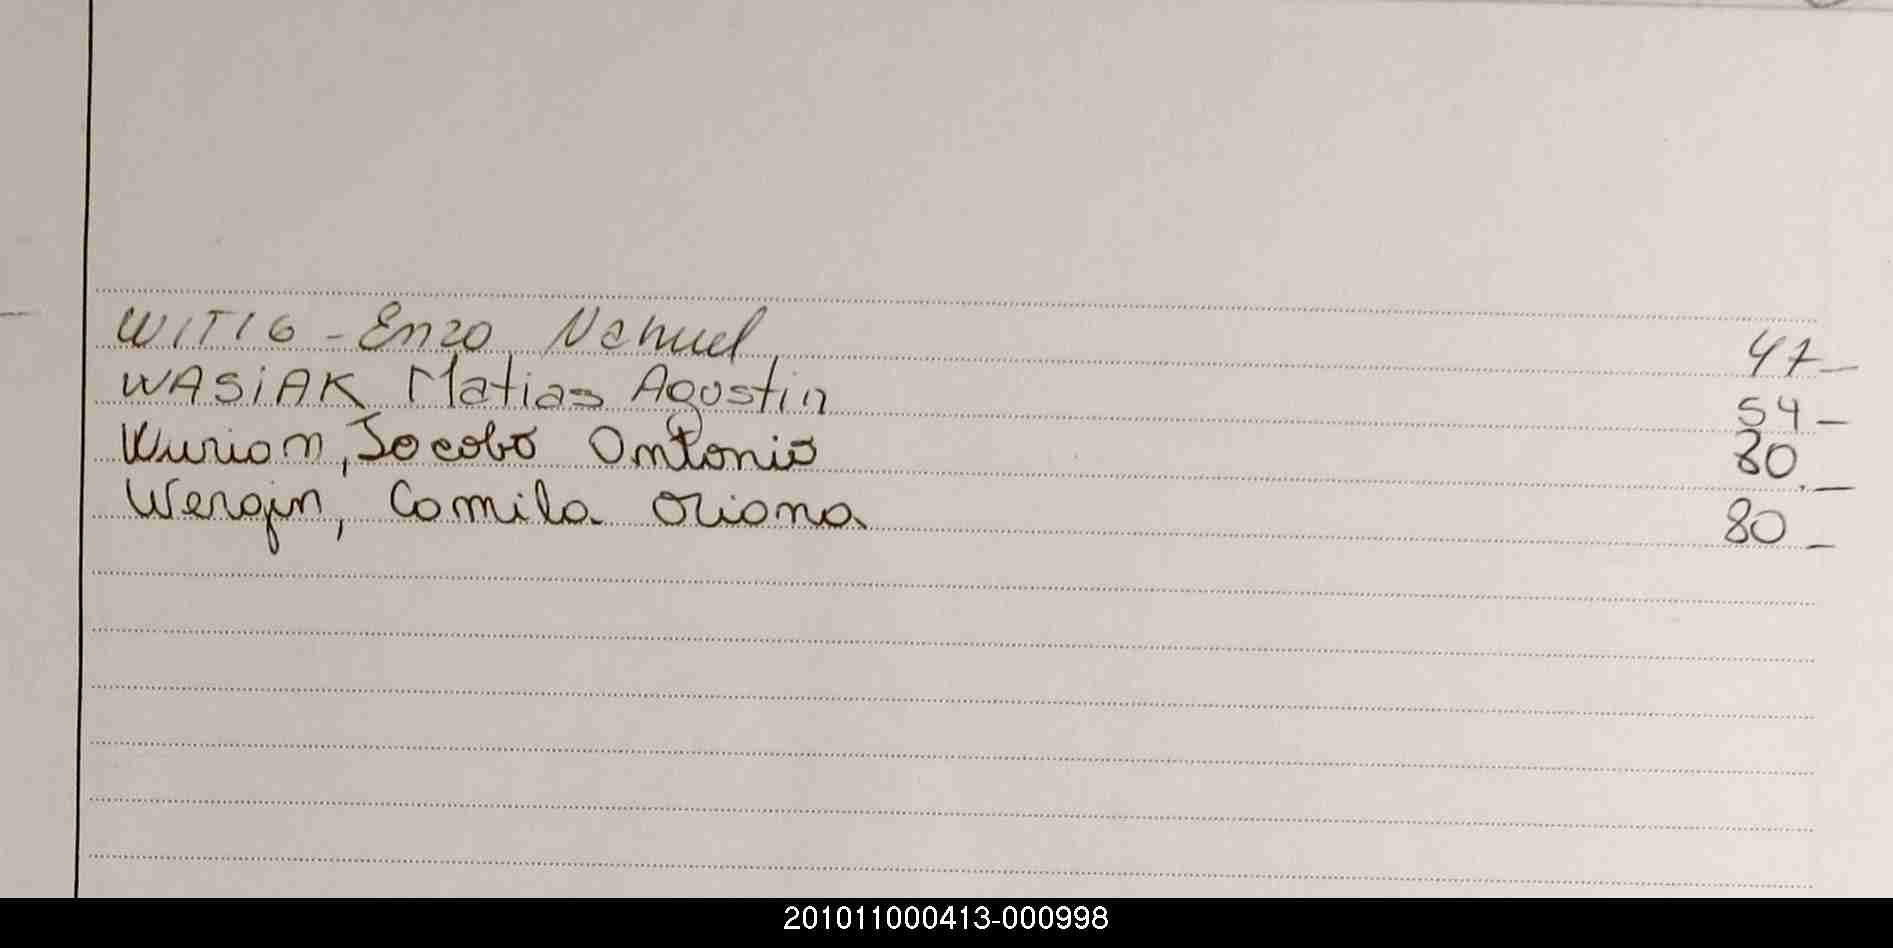 WITIG - Enzo Nahuel 47 -
WASiAK Matias Agostin 54 -
Wurian, Jocobo Antonio 80. -
Wergin, Camila Oriana 80 -
201011000413-000998